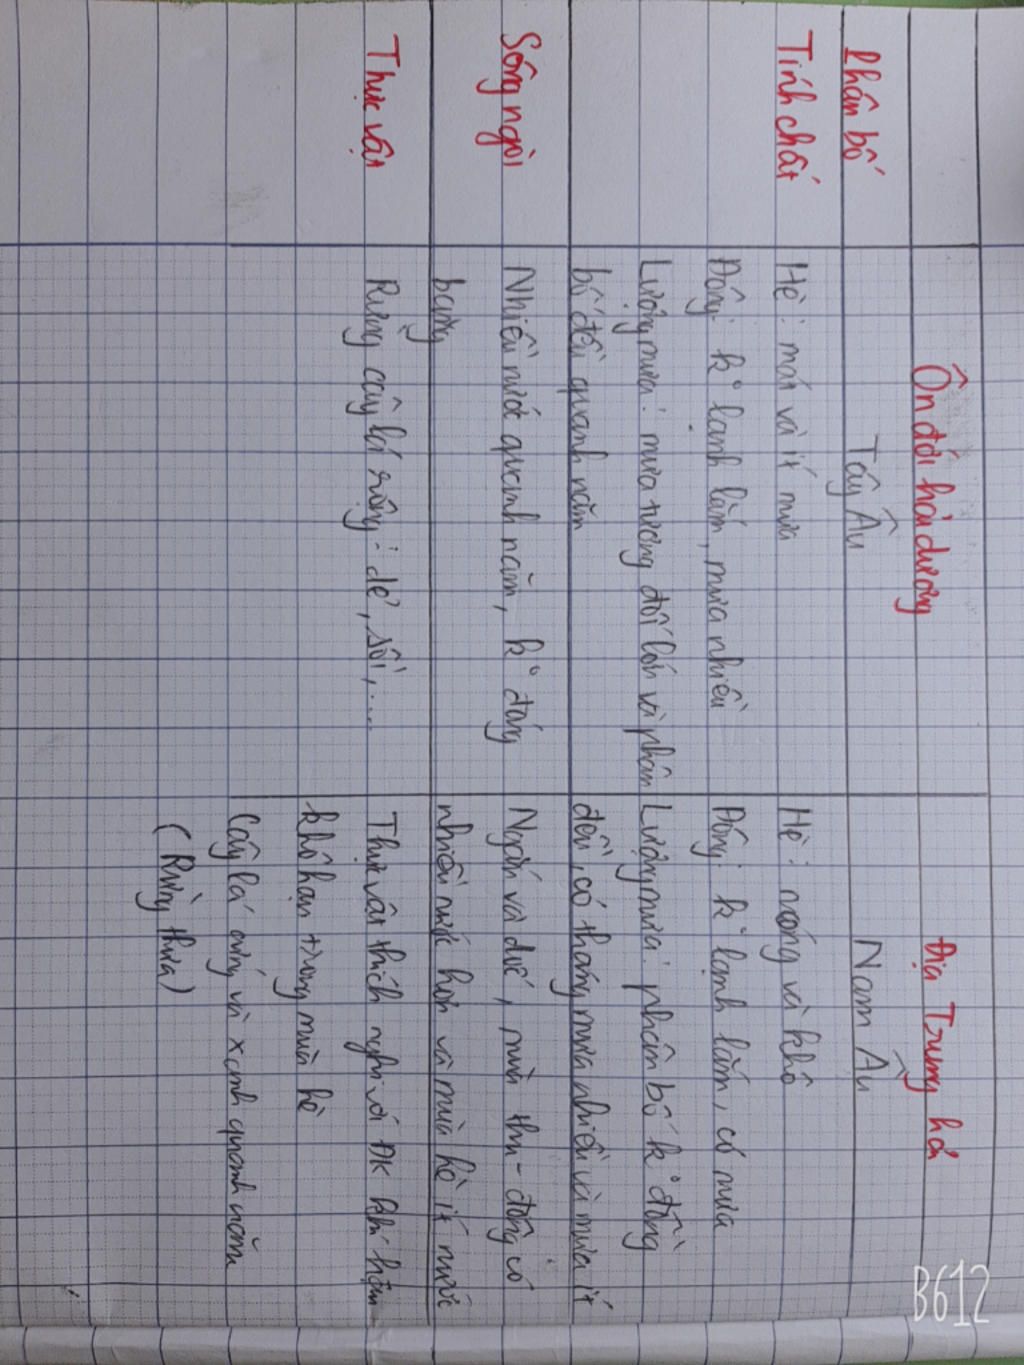 Ôn đới hải dương
Địa Trung hải
Phân bố
Tây Âu
Nam Âu
Tính chất
Hè: mát và ít mưa
Đông: kº lạnh lắm, mưa nhiều
Lượng mưa: mưa tương đối lớn và phân
bố đều quanh năm
Hè: nóng và khô
Đông: kº lạnh lắm, có mưa
Lượng mưa: phân bố kº đồng
đều, có tháng mưa nhiều và mưa ít
Sông ngòi
Nhiều nước quanh năm, kº đóng
băng
Ngắn và dốc, mùa thu-đông có
nhiều nước hơn và mùa hè ít nước
Thực vật
Rừng cây lá rộng: dẻ, sồi,...
Thực vật thích nghi với ĐK khí hậu
khô hạn trong mùa hè
Cây lá cứng và xanh quanh năm
(Rừng thưa)
B612